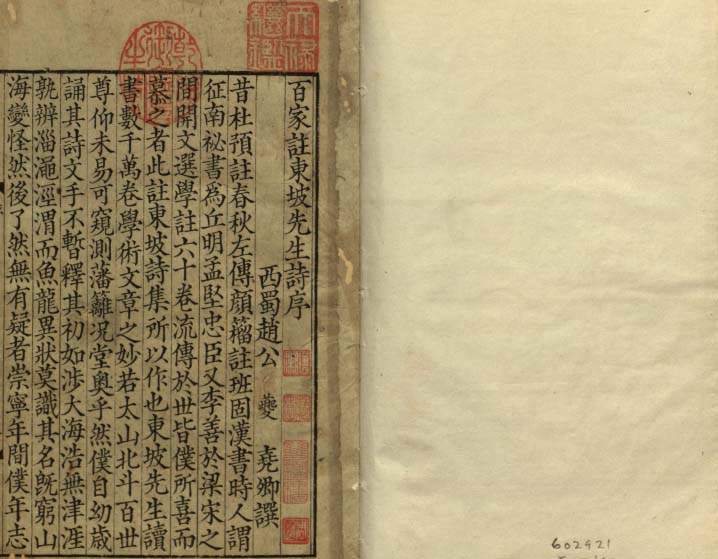 百家註東坡先生詩序
西蜀趙公 夔 堯卿譔
昔杜預註春秋左傳顔籀註班固漢書時人謂
征南祕書爲丘明孟堅忠臣又李善於梁宋之
間開文選學註六十卷流傳於世皆僕所喜而
慕之者此註東坡詩集所以作也東坡先生讀
書數千萬卷學術文章之妙若太山北斗百世
尊仰未易可窺測藩籬况堂奥乎然僕自幼歳
誦其詩文手不暫釋其初如涉大海浩無津涯
孰辨淄澠涇渭而魚龍異狀莫識其名旣窮山
海變怪然後了然無有疑者崇寧年間僕年志
602921